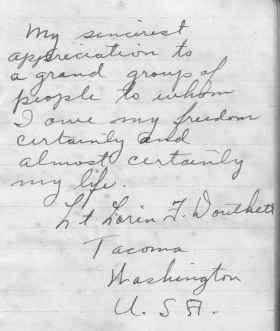 My sincerest
appreciation to
a grand group of
people to whom
I owe my freedom
certainly and
almost certainly
my life.
Lt Lorin F. Douthett
Tacoma
Washington
U. S A.